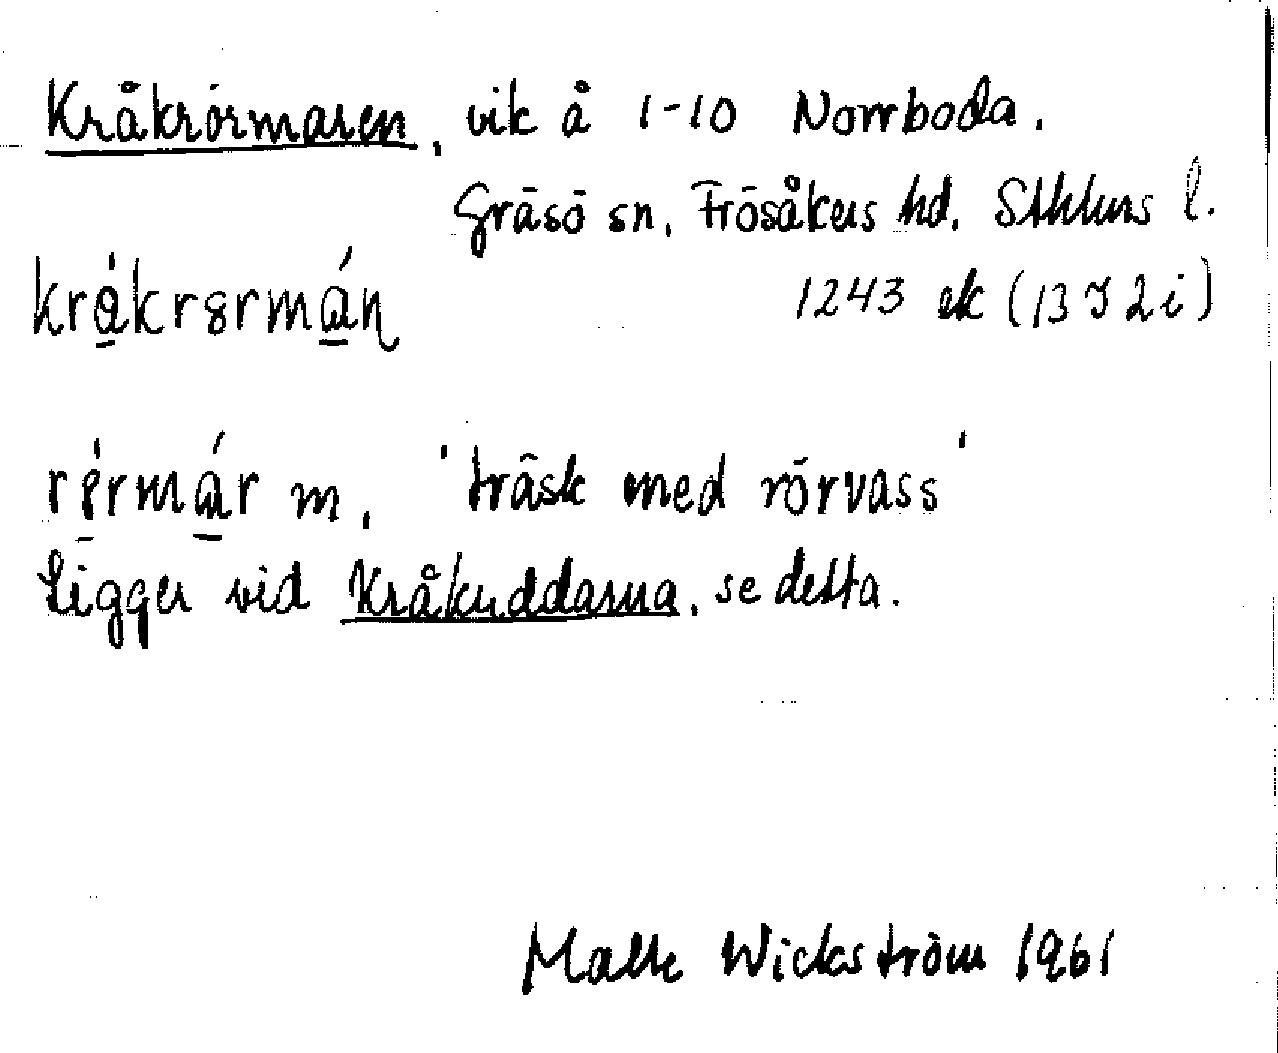 Kråkrörmaren, vik å 1-10 Norrboda.
Gräsö sn, Frösåkers hd, Sthlms l.
kråkrɞrmán
1243 ek (13 I 2 i)
rɞrmár m. 'träsk med rörvass'
Ligger vid Kråkuddarna, se detta.
Malte Wickström 1961